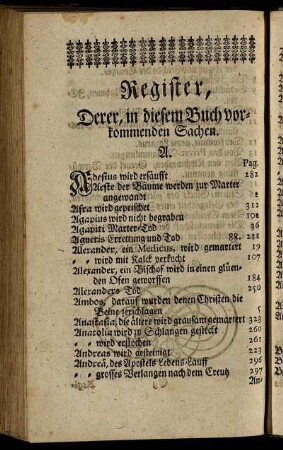 Register,
Derer, in diesem Buch vor-
kommenden Sachen.
A.
Pag.
Adesius wird ersäufft 282
Aeste der Bäume werden zur Marter
angewandt 2
Afra wird gepeitscht 312
Agapius wird nicht begraben 101
Agapiti Marter-Tod 36
Agnetis Errettung und Tod 88. 221
Alexander, ein Medicus, wird gemartert 19
" " wird mit Kalck verkocht 107
Alexander, ein Bischof wird in einen glüen-
den Ofen geworffen 184
Alexanders Tod 250
Ambos, darauf wurden denen Christen die
Beine zerschlagen 5
Anastasia, die ältere wird grausam gemartert 323
Anatolia wird zu Schlangen gesteckt 260
" " wird erstochen 261
Andreas wird gesteinigt 223
Andreä, des Apostels Lebens-Lauff 296
" " grosses Verlangen nach dem Creutz 297
An-